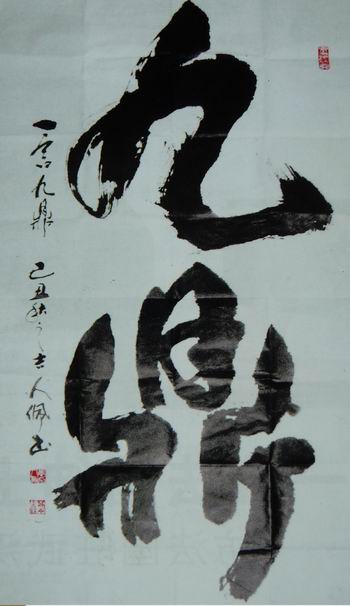 九鼎
一言九鼎
己丑秋
人佩书